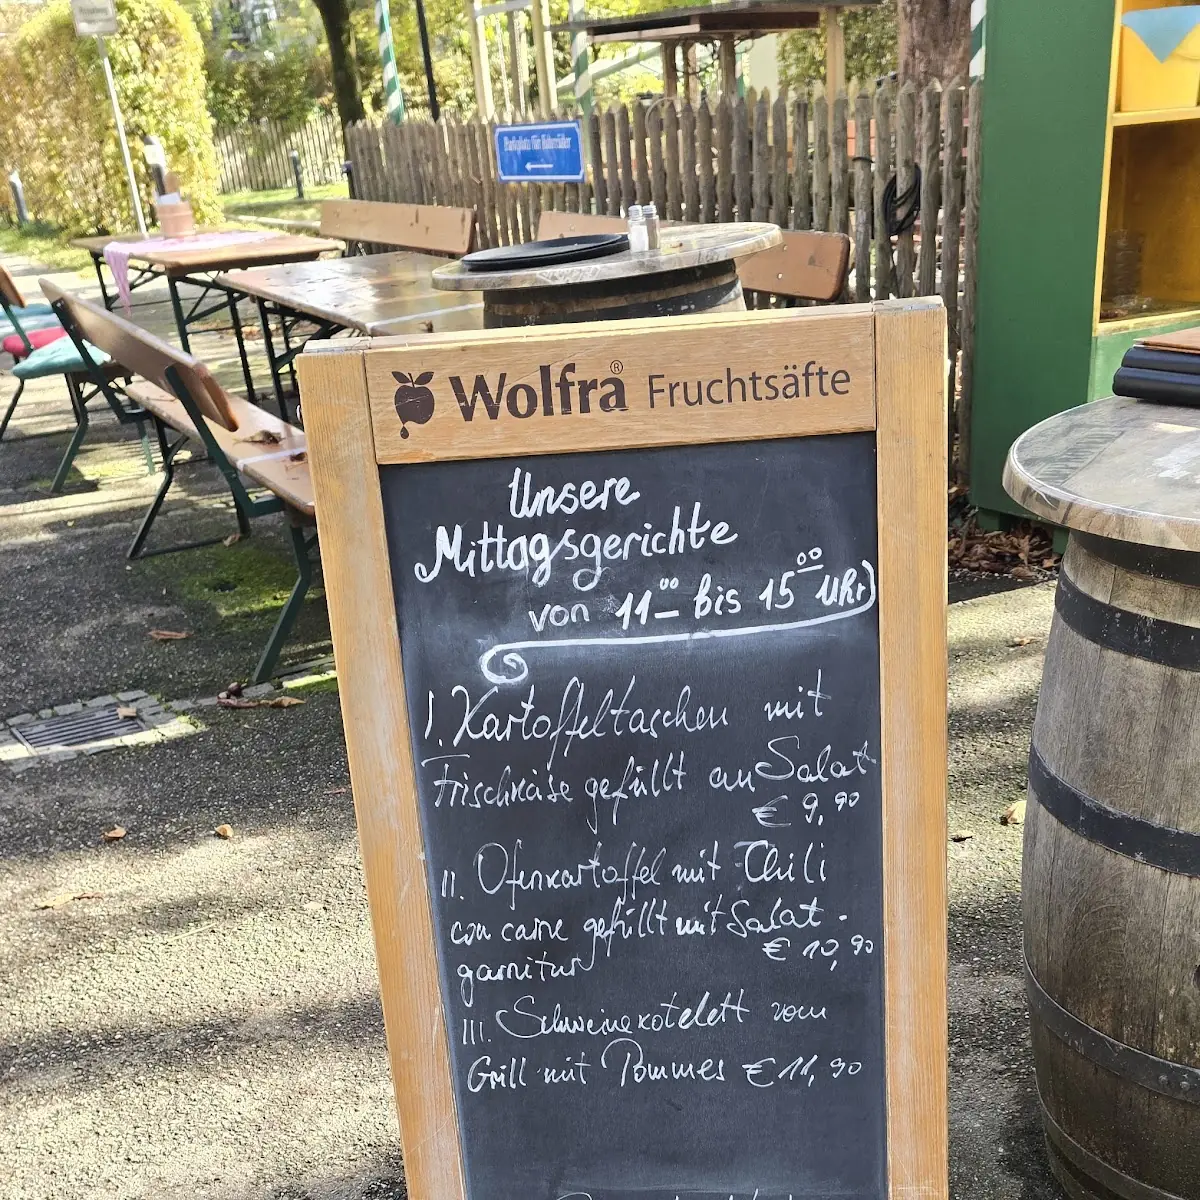 Parkplatz für Fahrräder
Wolfra® Fruchtsäfte
Unsere
Mittagsgerichte
von 11⁰⁰ bis 15⁰⁰ Uhr
I. Kartoffeltaschen mit
Frischkäse gefüllt an Salat
€ 9,90
II. Ofenkartoffel mit Chili
con carne gefüllt mit Salat-
€ 10,90
garnitur
III. Schweinekotelett vom
Grill mit Pommes € 11,90